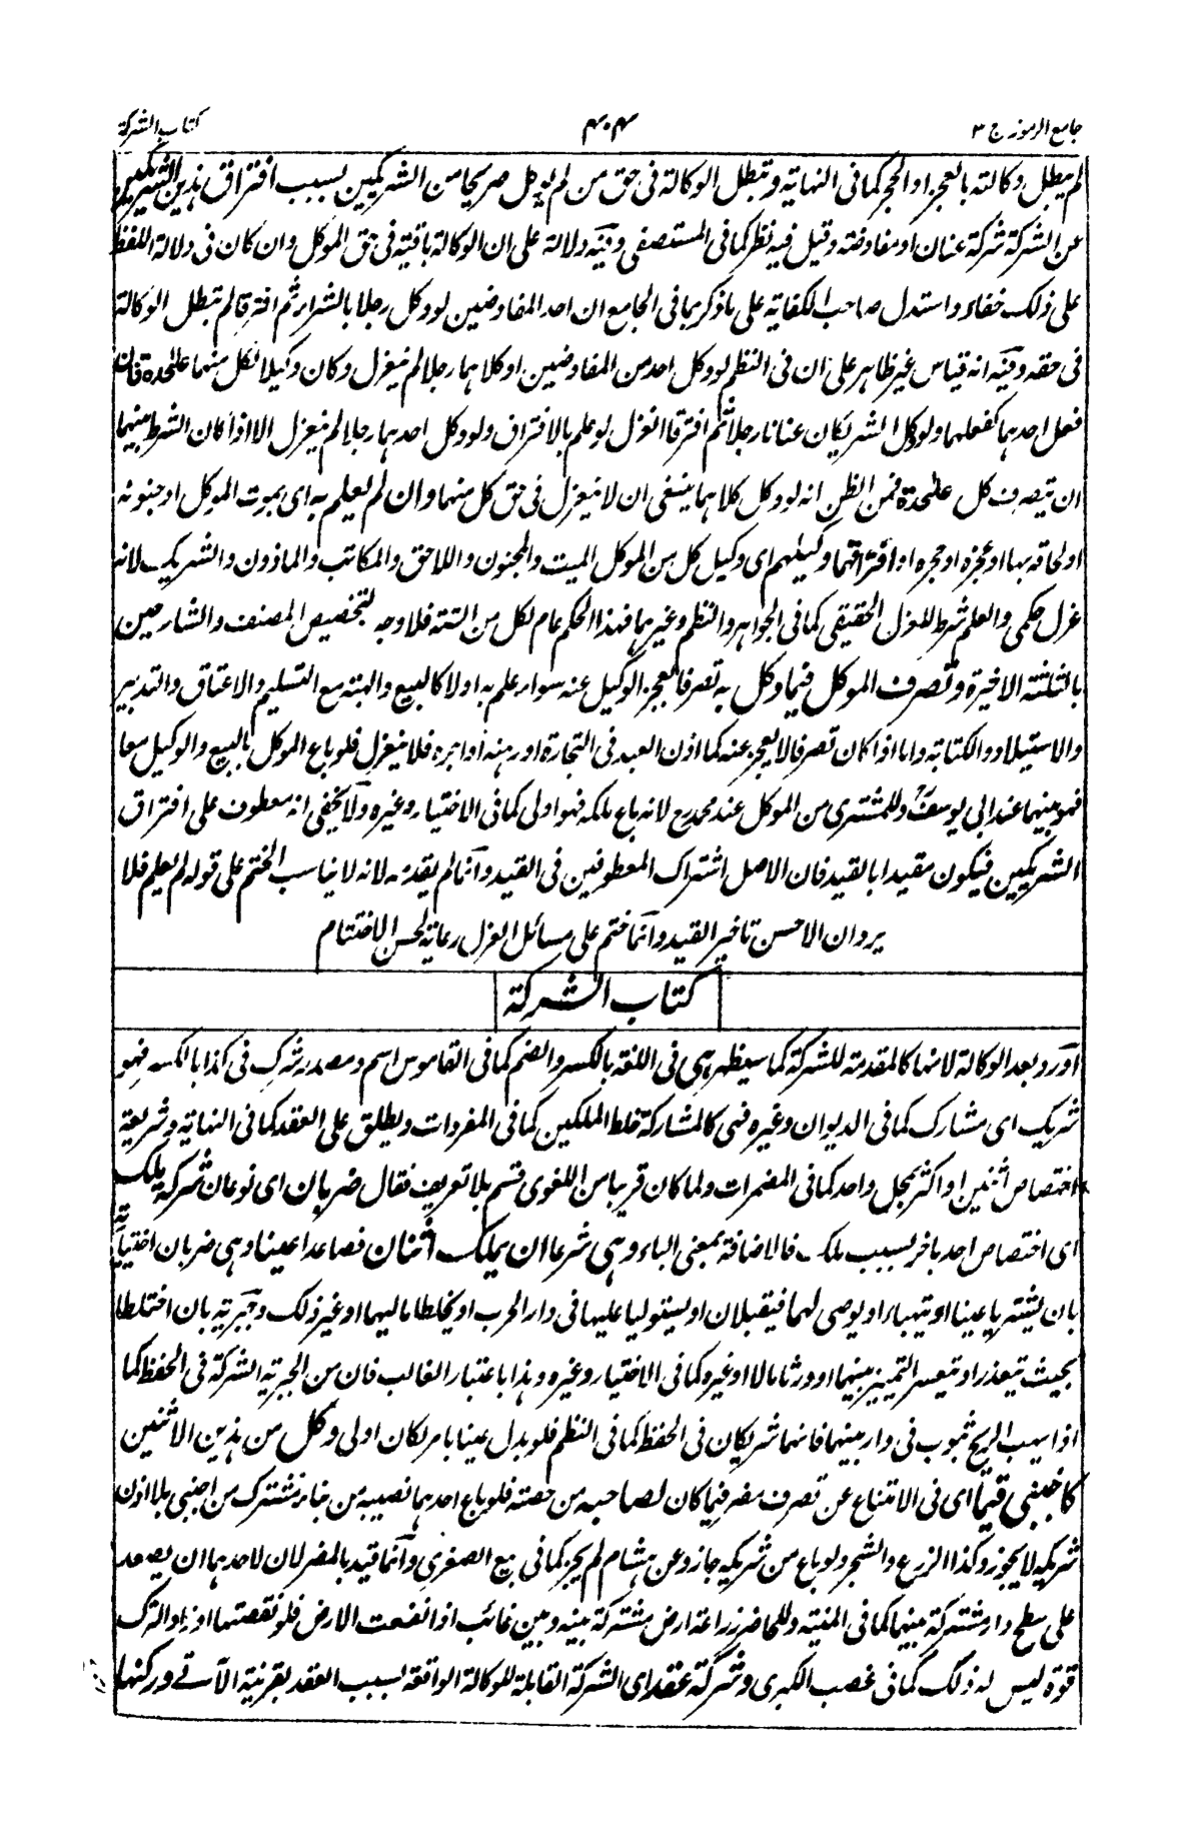 جامع الرموز ج ٣
٤٠٤
كتاب الشركة
لم يبطل وكالته بالعجز او الحجر كما فى النهاية وتبطل الوكالة فى حق من لم يوكل صريحا من الشريكين بسبب افتراق هذين الشريكين
عن الشركة شركة عنان او مفاوضة وقيل فيه نظر كما فى المستصفى وفيه دلالة على ان الوكالة باقية فى حق الموكل وان كان فى دلالة اللفظ
على ذلك خفاء واستدل صاحب الكفاية على ما ذكر بما فى الجامع ان احد المفاوضين لو وكل رجلا بالشراء ثم افترقا لم تبطل الوكالة
فى حقه وفيه انه قياس غير ظاهر على ان فى النظم لو وكل احد من المفاوضين او كلاهما رجلا لم ينعزل وكان وكيلا لكل منهما علحدة فان
فعل احدهما كفعلهما ولو وكل الشريكان عنانا رجلا ثم افترقا انعزل لو علم بالافتراق ولو وكل احدهما رجلا لم ينعزل الا اذا كان الشرط بينهما
ان يتصرف كل علحدة فمن الظن انه لو وكل كلاهما ينبغى ان لا ينعزل فى حق كل منهما وان لم يعلم به اى بموت الموكل او جنونه
او لحاقه بها او عجزه او حجره او افتراقهما وكيلهم اى وكيل كل من الموكل الميت والمجنون واللاحق والمكاتب والماذون والشريك لانه
عزل حكمى والعلم شرط للعزل الحقيقى كما فى الجواهر والنظم وغيرهما فهذا الحكم عام لكل من الستة فلا وجه لتخصيص المصنف والشارحين
بالثلثة الاخيرة وتصرف الموكل فيما وكل به تصرفا يعجز الوكيل عنه سواء علم به اولا كالبيع والهبة مع التسليم والاعتاق والتدبير
والاستيلاد والكتابة واما اذا كان تصرفا لا يعجز عنه كما اذن العبد فى التجارة او رهنه او اجره فلا ينعزل فلو باع الموكل بالبيع والوكيل معا
فهو بينهما عند ابى يوسف وللمشترى من الموكل عند محمد رح لانه باع ملكه فهو اولى كما فى الاختيار وغيره ولا يخفى انه معطوف على افتراق
الشريكين فيكون مقيدا بالقيد فان الاصل اشتراك المعطوفين فى القيد وانما لم يقدمه لانه لا يناسب الختم على قوله لم يعلم فلا
يرد ان الاحسن تاخير القيد وانما ختم على مسائل العزل رعاية لحسن الاختتام
كتاب الشركة
اورد بعد الوكالة لانها كالمقدمة للشركة كما سيظهر هى فى اللغة بالكسر والضم كما فى القاموس اسم ومصدر شرك فى كذا بالكسر فهو
شريك اى مشارك كما فى الديوان وغيره فهى كالمشاركة خلط الملكين كما فى المفردات ويطلق على العقد كما فى النهاية وشريعة
اختصاص اثنين او اكثر بمحل واحد كما فى المضمرات ولما كان قريبا من اللغوى قسم بلا تعريف فقال ضربان اى نوعان شركة ملك
اى اختصاص احد باخر بسبب ملك فالاضافة بمعنى الباء وهى شرعا ان يملك اثنان فصاعدا عينا وهى ضربان اختيارية
بان يشتريا عينا او يتهباه او يوصى لهما فيقبلان او يستوليا عليها فى دار الحرب او يخلطا ماليهما او غير ذلك وجبرية بان اختلطا
بحيث يتعذر او يتعسر التمييز بينهما او ورثا مالا او غيره كما فى الاختيار وغيره وهذا باعتبار الغالب فان من الجبرية الشركة فى الحفظ كما
اذا يهب الريح بثوب فى دار بينهما فانهما شريكان فى الحفظ كما فى النظم فلو بدل عينا بامر لكان اولى وكل من هذين الاثنين
كاجنبى قيما اى فى الامتناع عن تصرف مضر فيما كان لصاحبه من حصته فلو باع احدهما نصيبه من بناء مشترك من اجنبى بلا اذن
شريكه لا يجوز وكذا الزرع والشجر ولو باع من شريكه جاز وعن هشام لم يجز كما فى بيع الصغرى وانما قيد بالمضر لان لاحدهما ان يصعد
على سطح دار مشتركة بينهما كما فى المنية وللحاضر زراعة ارض مشتركة بينه وبين غائب اذا انفعت الارض فلو نقصتها او زاد الترك
قوة ليس له ذلك كما فى غصب الكبرى وشركة عقد اى الشركة القابلة للوكالة الواقعة بسبب العقد بقرينة الآتى وركنها